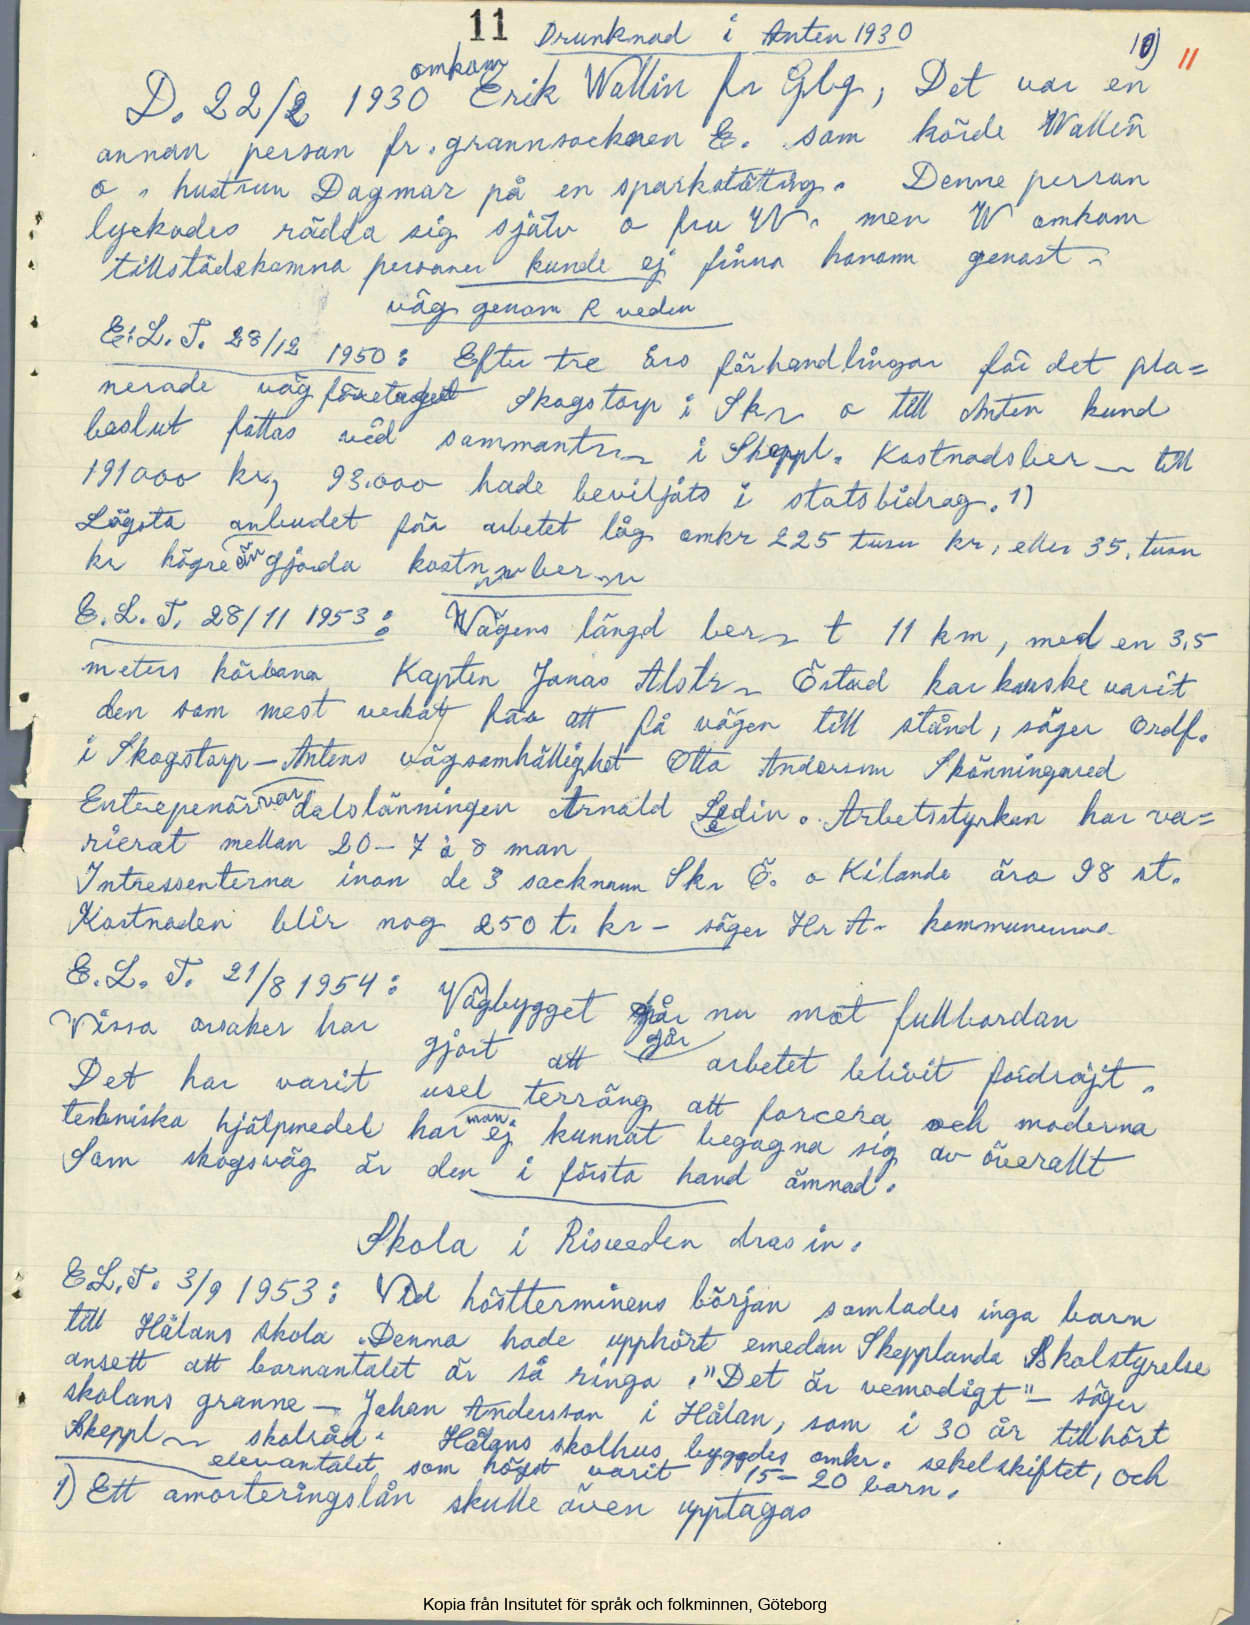 11 Drunknad i Anten 1930
10) 11
D. 22/2 1930 omkom Erik Wallin fr Gbg, Det var en
annan person fr. grannsocknen E. som körde Wallin
o. hustrun Dagmar på en sparkstötting. Denne person
lyckades rädda sig själv o fru W. men W omkom
tillstädekomna personer kunde ej finna honom genast.
väg genom R veden
E.L.T. 28/12 1950: Efter tre års förhandlingar för det pla=
nerade vägföretaget Skogstorp i Skr o till Anten kund
beslut fattas vid sammantr i Skeppl. Kostnadsber till
191000 kr, 93.000 hade beviljats i statsbidrag. 1)
Lägsta anbudet för arbetet låg omkr 225 tusn kr, eller 35. tusn
kr högre än gjorda kostn ber
E.L.T. 28/11 1953: Vägens längd ber t 11 km, med en 3,5
meters körbana Kapten Jonas Alstr Östad har kanske varit
den som mest verkat för att få vägen till stånd, säger ordf.
i Skogstorp – Antens vägsamhällighet Otto Andersson Skönningared
Entrepenör var dalslänningen Arnold Ledin. Arbetsstyrkan har va=
rierat mellan 20 – 7 à 8 man
Intressenterna inon de 3 socknarn Sk. Ö. o Kilanda äro 98 st.
Kostnaden blir nog 250 t. kr – säger Hr A. kommunerna
E.L.T. 21/8 1954: Vägbygget går nu mot fullbordan
går
Vissa orsaker har gjort att arbetet blivit fördröjt.
Det har varit usel terräng att forcera och moderna
tekniska hjälpmedel har man ej kunnat begagna sig av överallt
Som skogsväg är den i första hand ämnad.
Skola i Risveden dras in.
E.L.T. 3/9 1953: Vid höstterminens början samlades inga barn
till Hålans skola. Denna hade upphört emedan Skepplanda Skolstyrelse
ansett att barnantalet är så ringa. "Det är vemodigt" – säger
skolans granne – Johan Andersson i Hålan, som i 30 år tillhört
Skeppl skolråd. Hålans skolhus byggdes omkr. sekelskiftet, och
elevantalet som högst varit 15 – 20 barn.
1) Ett amorteringslån skulle även upptagas
Kopia från Insitutet för språk och folkminnen, Göteborg